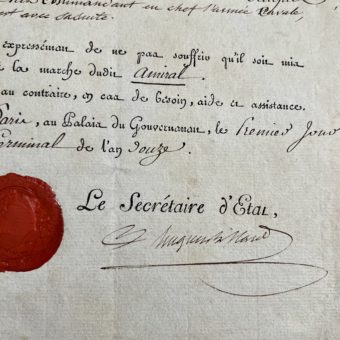 Commandant en chef l'armée Navale,
avec sa suite.
expressément de ne pas souffrir qu'il soit mis
la marche dudit Amiral
au contraire, en cas de besoin, aide et assistance.
Paris, au Palais du Gouvernement, le Premier Jour
Germinal de l'an Douze.
Le Secrétaire d'État,
Hugues B. Maret